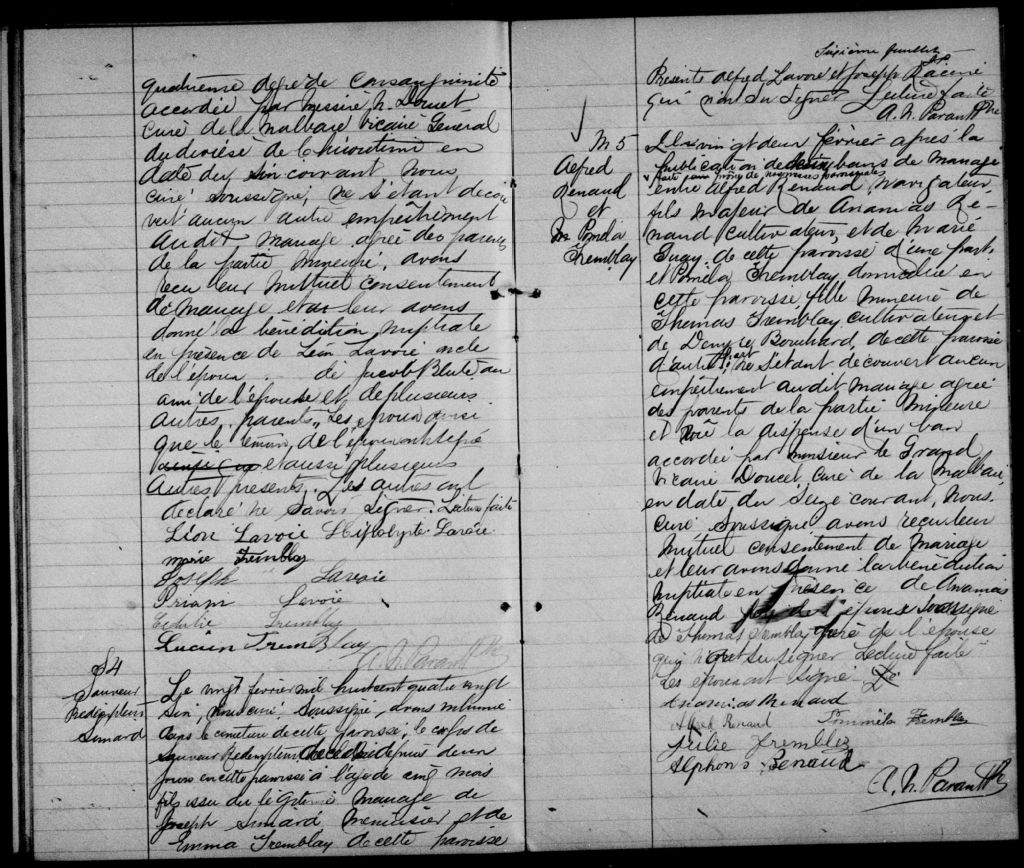 quatrième degré de consanguinité
accordée par messire N. Doucet
curé de la Malbaie vicaire Général
du diocèse de Chicoutimi en
date du six courant, Nous
curé soussigné, ne s'étant décou
vert aucun autre empêchement
audit mariage agréé des parents
de la partie mineure, avons
reçu leur mutuel consentement
de mariage et leur avons
donné la bénédiction nuptiale
en présence de Léon Lavoie oncle
de l'époux de Jacob
ami de l'épouse et de plusieurs
autres parents, Les époux ainsi
que le témoin de l'époux
et aussi plusieurs
autres présents. Les autres ont
déclaré ne savoir signer. Lecture faite
Léon Lavoie Hippolyte Lavoie
marie Tremblay
Joseph Lavoie
Priam Lavoie
Cédulie Tremblay
Lucien Tremblay
A. N. Parant Ptre
S4
Sauveur
Rédempteur
Simard
Le vingt février mil huit cent quatre vingt
six, nous curé soussigné, avons inhumé
dans le cimetière de cette paroisse, le corps de
Sauveur Rédempteur décédé depuis deux
jours en cette paroisse à l'age de cinq mois
fils issu du légitime mariage de
Joseph Simard Menuisier et de
Emma Tremblay de cette paroisse
Sixième feuillet
Présents Alfred Lavoie et Joseph Racine
qui n'ont su signer Lecture faite
A. N. Parant Ptre
M 5
Alfred
Renaud
et
M Pomela
Tremblay
Le vingt deux février après la
publication de bans de mariage
faite aux prônes de nos messes paroissiales
entre Alfred Renaud navigateur
fils majeur de Ananias Re-
naud cultivateur, et de Marie
Tugay de cette paroisse d'une part
et Pomela Tremblay domiciliée en
cette paroisse fille mineure de
Thomas Tremblay cultivateur et
de Bouchard de cette paroisse
d'autre part ne s'étant découvert aucun
empêchement audit mariage agréé
des parents de la partie mineure
et vu la dispense d'un ban
accordée par monsieur le Grand
vicaire Doucet, curé de la Malbaie
en date du Seize courant, Nous
curé soussigné avons reçu leur
mutuel consentement de Mariage
et leur avons donné la bénédiction
nuptiale en présence de Ananias
Renaud père de l'époux soussigné
de Thomas Tremblay père de l'épouse
qui n'ont su signer Lecture faite
Les époux ont signé. Le
Ananias Renaud
Alfred Renaud Pommela Tremblay
Julie Tremblay
Alphons Renaud
A. N. Parant Ptre